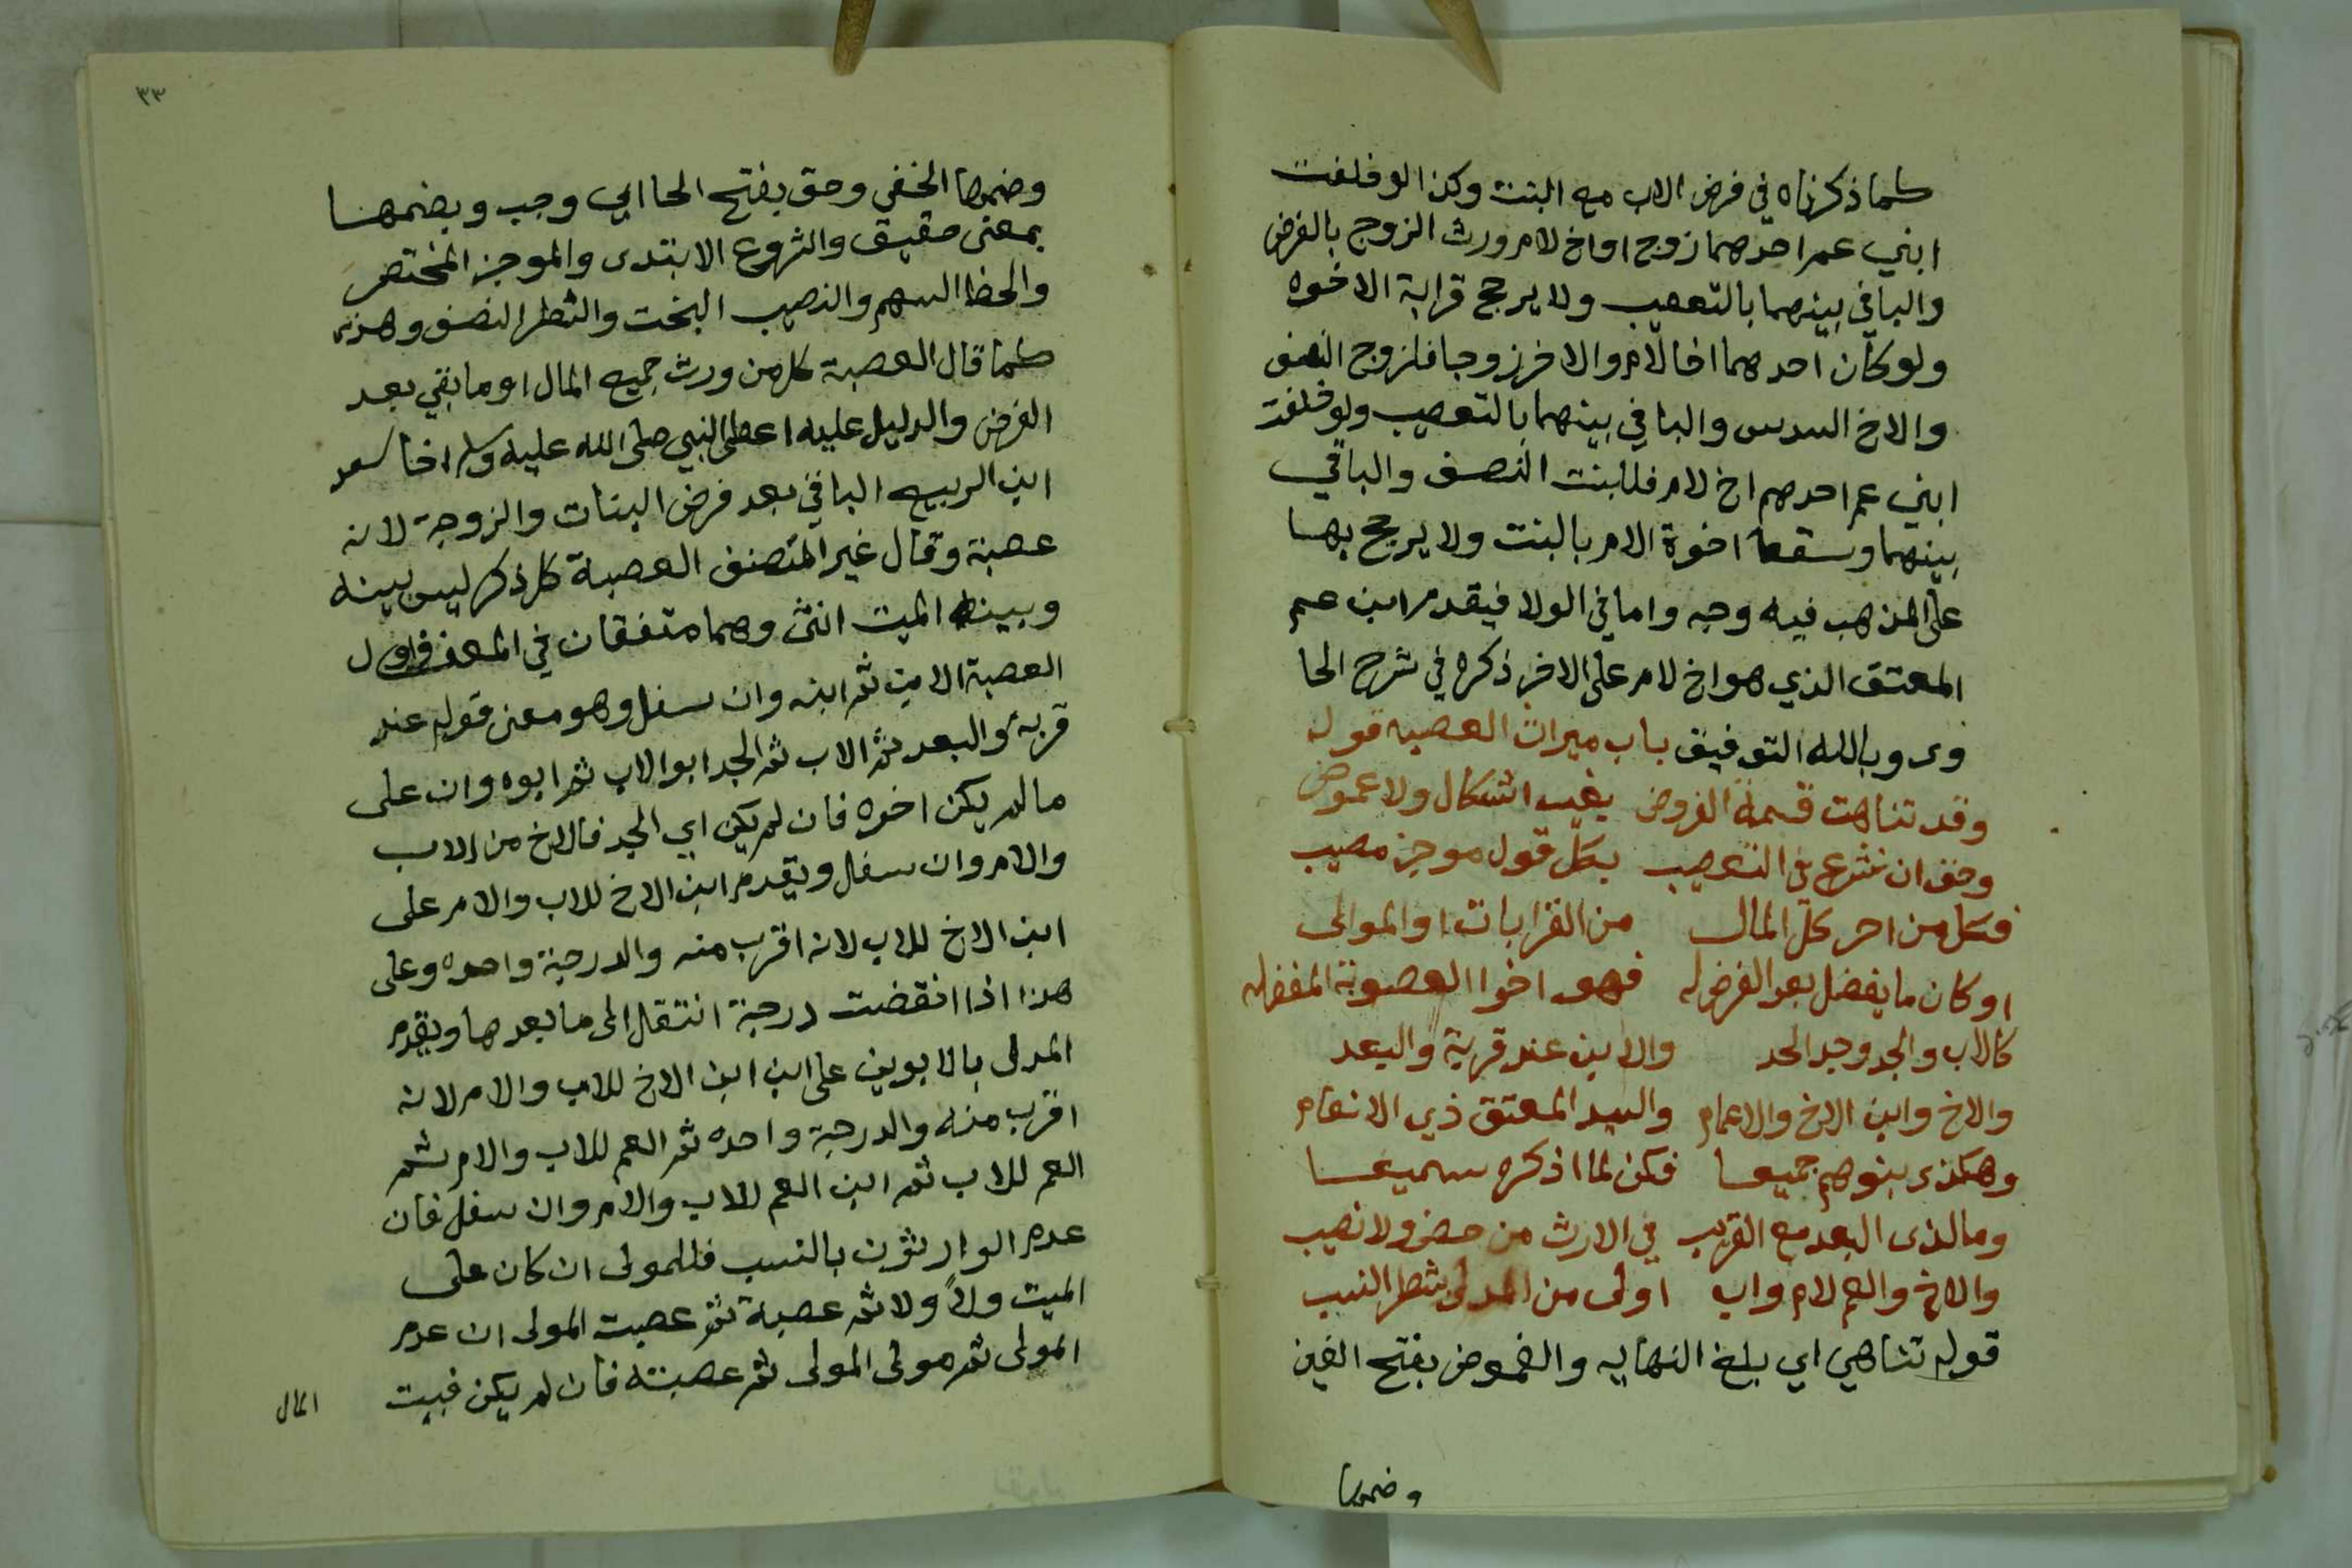 كما ذكرناه في فرض الاب مع البنت وكذا لو خلفت
ابني عم احدهما زوج او اخ لام ورث الزوج بالفرض
والباقي بينهما بالتعصيب ولا يرجح قرابة الاخوه
ولو كان احدهما اخا لام والاخر زوجا فلزوج النصف
والاخ السدس والباقي بينهما بالتعصيب ولو خلفت
ابني عم احدهم اخ لام فللبنت النصف والباقي
بينهما وسقط اخوة الام بالبنت ولا يرجح بها
على المذهب فيه وجه واما في الولا فيقدم ابن عم
المعتق الذي هو اخ لام على الاخر ذكره في شرح الحا
وى وبالله التوفيق باب ميراث العصبه قوله
وقد تناهت قسمة الفروض بغير اشكال ولا غموض
وحق ان نشرع في التعصيب بكل قول موجز مصيب
فكل من احرز كل المال من القرابات او الموالى
او كان ما يفضل بعد الفرض له فهو اخوا العصوبة المفضله
كالاب والجد وجد الجد والابن عند قربة والبعد
والاخ وابن الاخ والاعمام والسيد المعتق ذي الانعام
وهكذى بنوهم جميعا فكن لما اذكره سميعا
وما لذى البعد مع القريب في الارث من حض ولا نصيب
والاخ والعم لام واب اولى من المدلى بشطر النسب
قوله تناهي اي بلغ النهايه والغموض بفتح الغين
وضمها
٣٣
وضمها الخفي وحق بفتح الحا اي وجب وبضمها
بمعنى حقيق والشروع الابتدى والموجز المختصر
والحظ السهم والنصيب البخت والشطر النصف وهذى
كما قال العصبة كل من ورث جميع المال او ما بقي بعد
الفرض والدليل عليه اعطى النبي صلى الله عليه وسلم اخا سعد
ابن الربيع الباقي بعد فرض البنات والزوجة لانه
عصبة وقال غير المتصنف العصبة كل ذكر ليس بينه
وبين الميت انثى وهما متفقان في المعنى فاول
العصبة الابن ثم ابنه وان سفل وهو معنى قوله عند
قربة والبعد ثم الاب ثم الجد ابو الاب ثم ابوه وان على
مالم يكن اخوه فان لم يكن اي الجد فالاخ من الاب
والام وان سفل ويقدم ابن الاخ للاب والام على
ابن الاخ للاب لانه اقرب منه والدرجة واحده وعلى
هذا اذا انقضت درجة انتقل الى ما بعدها ويقدم
المدلى بالابوين على ابن ابن الاخ للاب والام لانه
اقرب منه والدرجة واحده ثم العم للاب والام ثم
العم للاب ثم ابن العم للاب والام وان سفل فان
عدم الوارثون بالنسب فللمولى ان كان على
الميت ولاً ولا ثم عصبة ثم عصبت المولى ان عدم
المولى ثم مولى المولى ثم عصبته فان لم يكن فبيت
المال